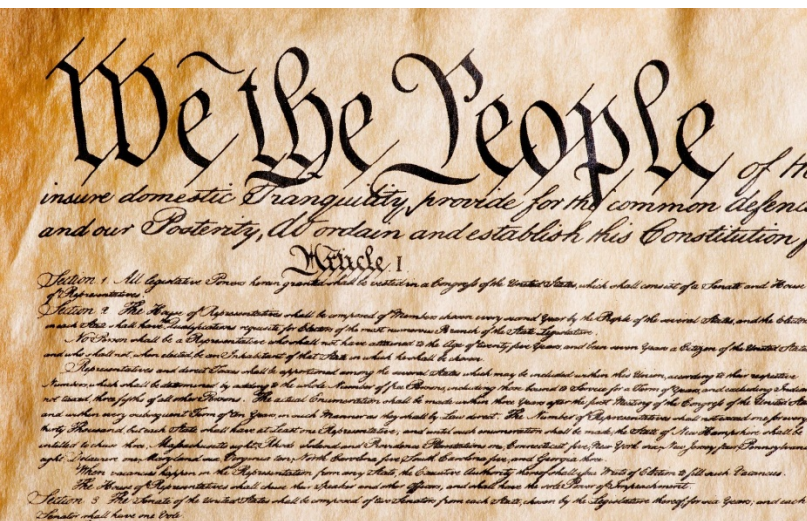 We the People of th
insure domestic Tranquility, provide for the common defenc
and our Posterity, do ordain and establish this Constitution f
Article I
Section 1. All legislative Powers herein granted shall be vested in a Congress of the United States, which shall consist of a Senate and House
of Representatives.
Section 2. The House of Representatives shall be composed of Members chosen every second Year by the People of the several States, and the Electors
in each State shall have Qualifications requisite for Electors of the most numerous Branch of the State Legislature.
No Person shall be a Representative who shall not have attained to the Age of twenty five Years, and been seven Years a Citizen of the United States
and who shall not, when elected, be an Inhabitant of that State in which he shall be chosen
Representatives and direct Taxes shall be apportioned among the several States which may be included within this Union, according to their respective
Numbers, which shall be determined by adding to the whole Number of free Persons, including those bound to Service for a Term of Years, and excluding Indians
not taxed, three fifths of all other Persons. The actual Enumeration shall be made within three Years after the first Meeting of the Congress of the United States
and within every subsequent Term of ten Years, in such Manner as they shall by Law direct. The Number of Representatives shall not exceed one for every
thirty Thousand, but each State shall have at Least one Representative, and until such enumeration shall be made, the State of New Hampshire shall be
entitled to chuse three, Massachusetts eight, Rhode Island and Providence Plantations one, Connecticut five, New York six, New Jersey four, Pennsylvania
eight, Delaware one, Maryland six, Virginia ten, North Carolina five, South Carolina five, and Georgia three.
When vacancies happen in the Representation from any State, the Executive Authority thereof shall issue Writs of Election to fill such Vacancies.
The House of Representatives shall chuse their Speaker and other Officers, and shall have the sole Power of Impeachment.
Section 3. The Senate of the United States shall be composed of two Senators from each State, chosen by the Legislature thereof, for six Years; and each
Senator shall have one Vote.